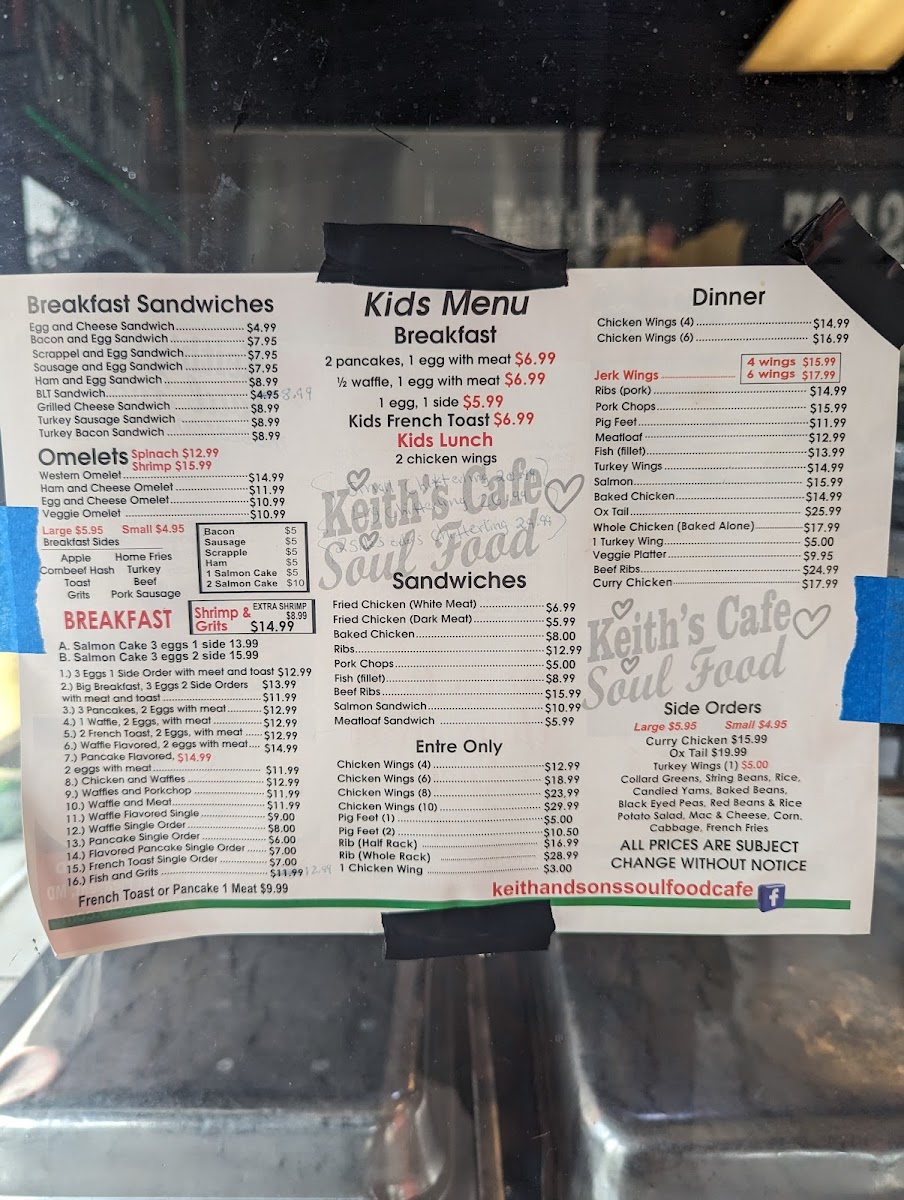 Breakfast Sandwiches
Egg and Cheese Sandwich $4.99
Bacon and Egg Sandwich $7.95
Scrappel and Egg Sandwich $7.95
Sausage and Egg Sandwich $7.95
Ham and Egg Sandwich $8.99
BLT Sandwich $4.95 8.49
Grilled Cheese Sandwich $8.99
Turkey Sausage Sandwich $8.99
Turkey Bacon Sandwich $8.99
Omelets Spinach $12.99
Shrimp $15.99
Western Omelet $14.99
Ham and Cheese Omelet $11.99
Egg and Cheese Omelet $10.99
Veggie Omelet $10.99
Large $5.95 Small $4.95
Breakfast Sides
Apple Home Fries
Cornbeef Hash Turkey
Toast Beef
Grits Pork Sausage
Bacon $5
Sausage $5
Scrapple $5
Ham $5
1 Salmon Cake $5
2 Salmon Cake $10
BREAKFAST
Shrimp & Grits EXTRA SHRIMP $8.99
$14.99
A. Salmon Cake 3 eggs 1 side 13.99
B. Salmon Cake 3 eggs 2 side 15.99
1.) 3 Eggs 1 Side Order with meet and toast $12.99
2.) Big Breakfast, 3 Eggs 2 Side Orders $13.99
with meat and toast $11.99
3.) 3 Pancakes, 2 Eggs with meat $12.99
4.) 1 Waffle, 2 Eggs, with meat $12.99
5.) 2 French Toast, 2 Eggs, with meat $12.99
6.) Waffle Flavored, 2 eggs with meat $14.99
7.) Pancake Flavored, $14.99
2 eggs with meat $11.99
8.) Chicken and Waffles $12.99
9.) Waffles and Porkchop $11.99
10.) Waffle and Meat $11.99
11.) Waffle Flavored Single $9.00
12.) Waffle Single Order $8.00
13.) Pancake Single Order $6.00
14.) Flavored Pancake Single Order $7.00
15.) French Toast Single Order $7.00
16.) Fish and Grits $11.99 12.99
French Toast or Pancake 1 Meat $9.99
Kids Menu
Breakfast
2 pancakes, 1 egg with meat $6.99
½ waffle, 1 egg with meat $6.99
1 egg, 1 side $5.99
Kids French Toast $6.99
Kids Lunch
2 chicken wings
Keith's Cafe
Soul Food
Sandwiches
Fried Chicken (White Meat) $6.99
Fried Chicken (Dark Meat) $5.99
Baked Chicken $8.00
Ribs $12.99
Pork Chops $5.00
Fish (fillet) $8.99
Beef Ribs $15.99
Salmon Sandwich $10.99
Meatloaf Sandwich $5.99
Entre Only
Chicken Wings (4) $12.99
Chicken Wings (6) $18.99
Chicken Wings (8) $23.99
Chicken Wings (10) $29.99
Pig Feet (1) $5.00
Pig Feet (2) $10.50
Rib (Half Rack) $16.99
Rib (Whole Rack) $28.99
1 Chicken Wing $3.00
Dinner
Chicken Wings (4) $14.99
Chicken Wings (6) $16.99
Jerk Wings 4 wings $15.99
6 wings $17.99
Ribs (pork) $14.99
Pork Chops $15.99
Pig Feet $11.99
Meatloaf $12.99
Fish (fillet) $13.99
Turkey Wings $14.99
Salmon $15.99
Baked Chicken $14.99
Ox Tail $25.99
Whole Chicken (Baked Alone) $17.99
1 Turkey Wing $5.00
Veggie Platter $9.95
Beef Ribs $24.99
Curry Chicken $17.99
Keith's Cafe
Soul Food
Side Orders
Large $5.95 Small $4.95
Curry Chicken $15.99
Ox Tail $19.99
Turkey Wings (1) $5.00
Collard Greens, String Beans, Rice,
Candied Yams, Baked Beans,
Black Eyed Peas, Red Beans & Rice
Potato Salad, Mac & Cheese, Corn.
Cabbage, French Fries
ALL PRICES ARE SUBJECT
CHANGE WITHOUT NOTICE
keithandsonssoulfoodcafe f